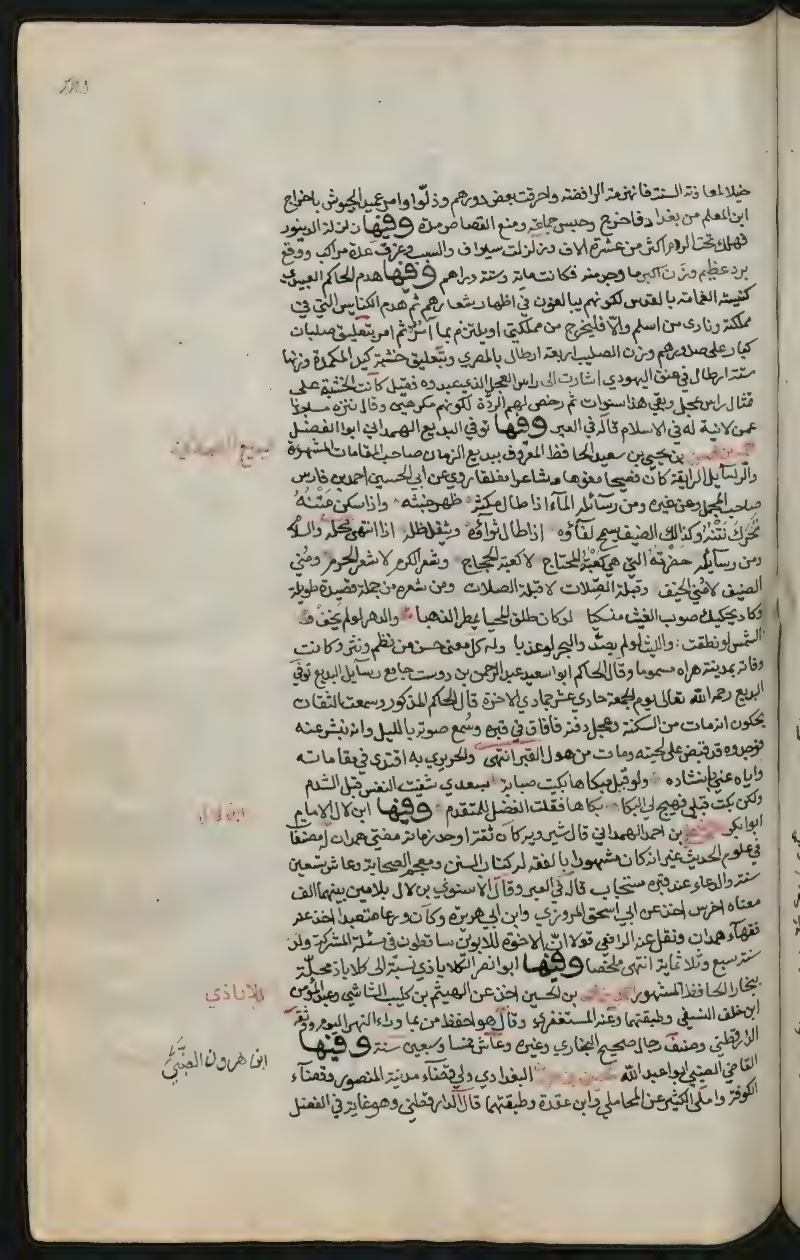 خيلا لمعاونة السنة فانهزمت الرافضة واحرقت بعض دورهم وذلوا وامر عميد الجيوش باخراج
ابن المعلم من بغداد فاخرج وحبس جماعة ومنع القصاص مدة وفيها زلزلة الدينور
فهلك تحت الردم اكثر من عشرة الاف وزلزلت سيراف والسيب وغرق عدة مراكب ووقع
برد عظيم وزن اكبر ما وجد منه فكانت ماية وستة دراهم وفيها هدم الحاكم العبيدي
كنيسة القمامة بالقدس لكونهم يبالغون في اظهار شعارهم ثم هدم الكنايس التي في
مملكته ونادى من اسلم والا فليخرج من مملكتي او يلتزم بما امر ثم امر بتعليق صلبان
كبار على صدورهم وزن الصليب اربعة ارطال بالمصري وبتعليق خشبة كيد المكمدة وزنها
ستة ارطال في عنق اليهودي اشارة الى راس العجل الذي عبدوه فقيل كانت الخشبة على
تمثال راس عجل وبقي هذا سنوات ثم رخص لهم الردة لكونهم مكرهين وقال ننزه مساجدنا
عمن لانية له في الاسلام قاله في العبر وفيها توفي البديع الهمداني ابو الفضل
بن يحيى بن سعيد الحافظ المعروف ببديع الزمان صاحب المقامات المشهورة
والرسايل الرايقة كان فصيحا مفوها وشاعرا مفلقا روى عن ابي الحسين احمد بن فارس
صاحب المجمل وعن غيره ومن رسائله الماء اذا طال مكثه ظهر خبثه واذا سكن متنه
تحرك نتنه وكذلك الضيف يسمج لقاؤه اذا طال ثواؤه ويثقل ظله اذا انتهى محله والسلام
ومن رسايله حضرته التي هي كعبة المحتاج لا كعبة الحجاج ومشعر الكرم لا مشعر الحرم ومنى
الضيف لا منى الخيف وقبلة الصلات لا قبلة الصلاة ومن شعره من جملة قصيدة طويلة
وكاد يحكيك صوب الغيث منسكبا لو كان طلق المحيا يمطر الذهبا والدهر لو لم يخن و
الشمس لو نطقت والليث لو لم يصد والبحر لو عذبا وله كل معنى حسن من نظم ونثر وكانت
وفاته بمدينة هراه مسموما وقال الحاكم ابو سعيد عبد الرحمن بن دوست جامع رسايل البديع توفي
البديع رحمه الله تعالى يوم الجمعة حادي عشر جمادي الاخرة قال الحاكم المذكور وسمعت الثقات
يحكون انه مات من السكتة وعجل دفنه فافاق في قبره وسمع صوته بالليل وانه نبش عنه
فوجدوه قد قبض على لحيته ومات من هول القبر انتهى والحريري به اقتدى في مقاماته
واياه عني بانشاده ولو قبل مبكاها بكيت صبابة بسعدي شفيت النفس قبل التندم
ولكن بكت قبلي فهيج لي البكا بكاها فقلت الفضل للمتقدم وفيها ابن لال الامام
ابو بكر بن احمد الهمداني قال شيرويه كان ثقة اوحد زمانه مفتي همدان له مصنفات
في علوم الحديث غير انه كان مشهورا بالفقه له كتاب السنن ومعجم الصحابة وعاش تسعين
سنة والدعاء عند قبره مستجاب قاله في العبر وقال الاسنوي بن لال بلامين بينهما الف
معناه اخرس اخذ عن ابي اسحق المروزي وابن ابي هريرة وكان ورعا متعبدا اخذ عنه
فقهاء همدان ونقل عنه الرافعي قولا ان الاخوة للابوين ساقطون في مسئلة المشركة ولد
سنة سبع وثلاثماية انتهى ملخصا وفيها ابو نصر الكلاباذي نسبة الى كلاباذ محلة
ببخارا الحافظ المشهور بن الحسين اخذ عن الهيثم بن كليب الشاشي وعبد المؤمن
ابن خلف النسفي وطبقتهما وعنه المستغفري وقال هو احفظ من بما وراء النهر اليوم ووثقه
الدارقطني وصنف رجال صحيح البخاري وغيره وعاش خمسا وسبعين سنة وفيها
القاضي الضبي ابو عبد الله البغدادي ولي قضاء مدينة المنصور وقضاء
الكوفة واملى الكثير عن المحاملي وابن عقدة وطبقتهما قال الدارقطني وهو غاية في الفضل
بديع الهمداني
ابن لال
كلاباذي
ابن هرون الضبي